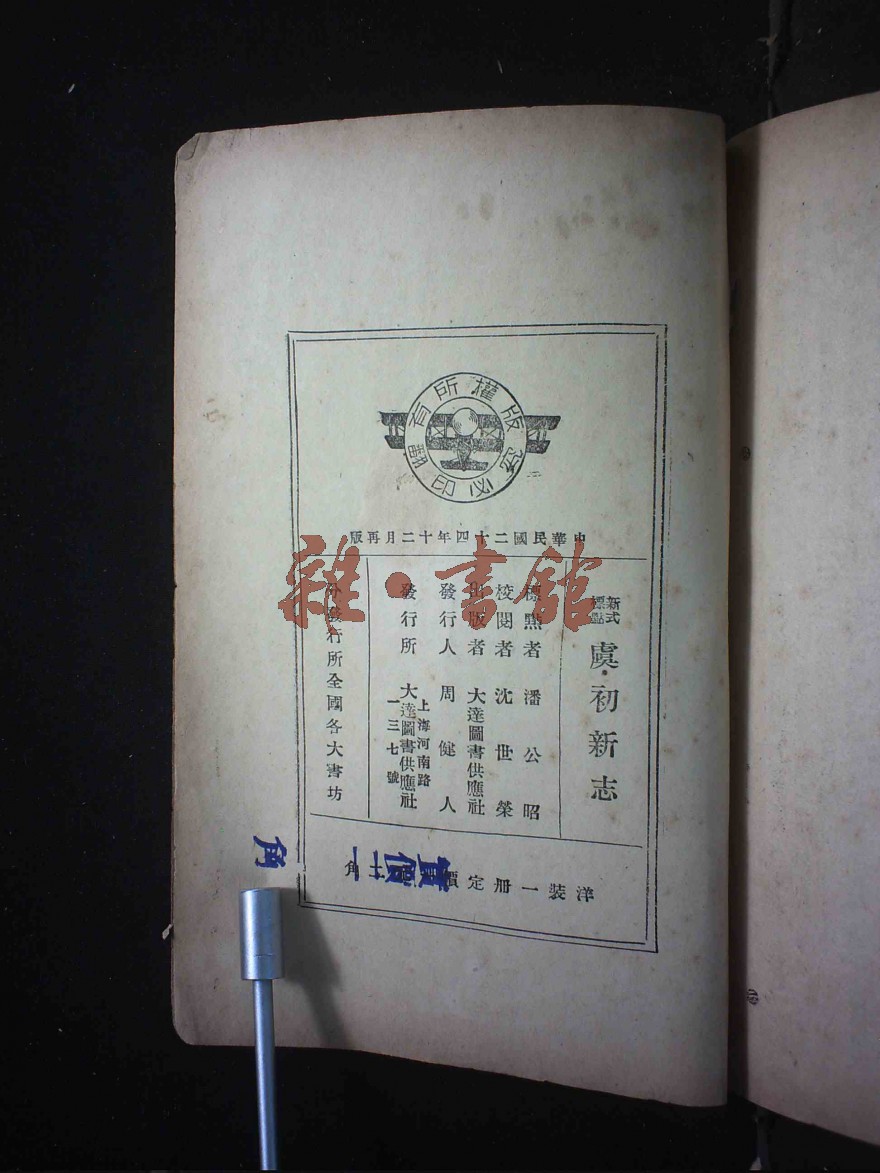 版權所有
翻印必究
中華民國二十四年十二月再版
新式標點
虞初新志
標點者 潘公昭
校閱者 沈世榮
出版者 大達圖書供應社
發行人 周健人
發行所 大達圖書供應社
上海河南路一三七號
分發行所全國各大書坊
洋裝一冊定價
角
實價二
角
雜·書館